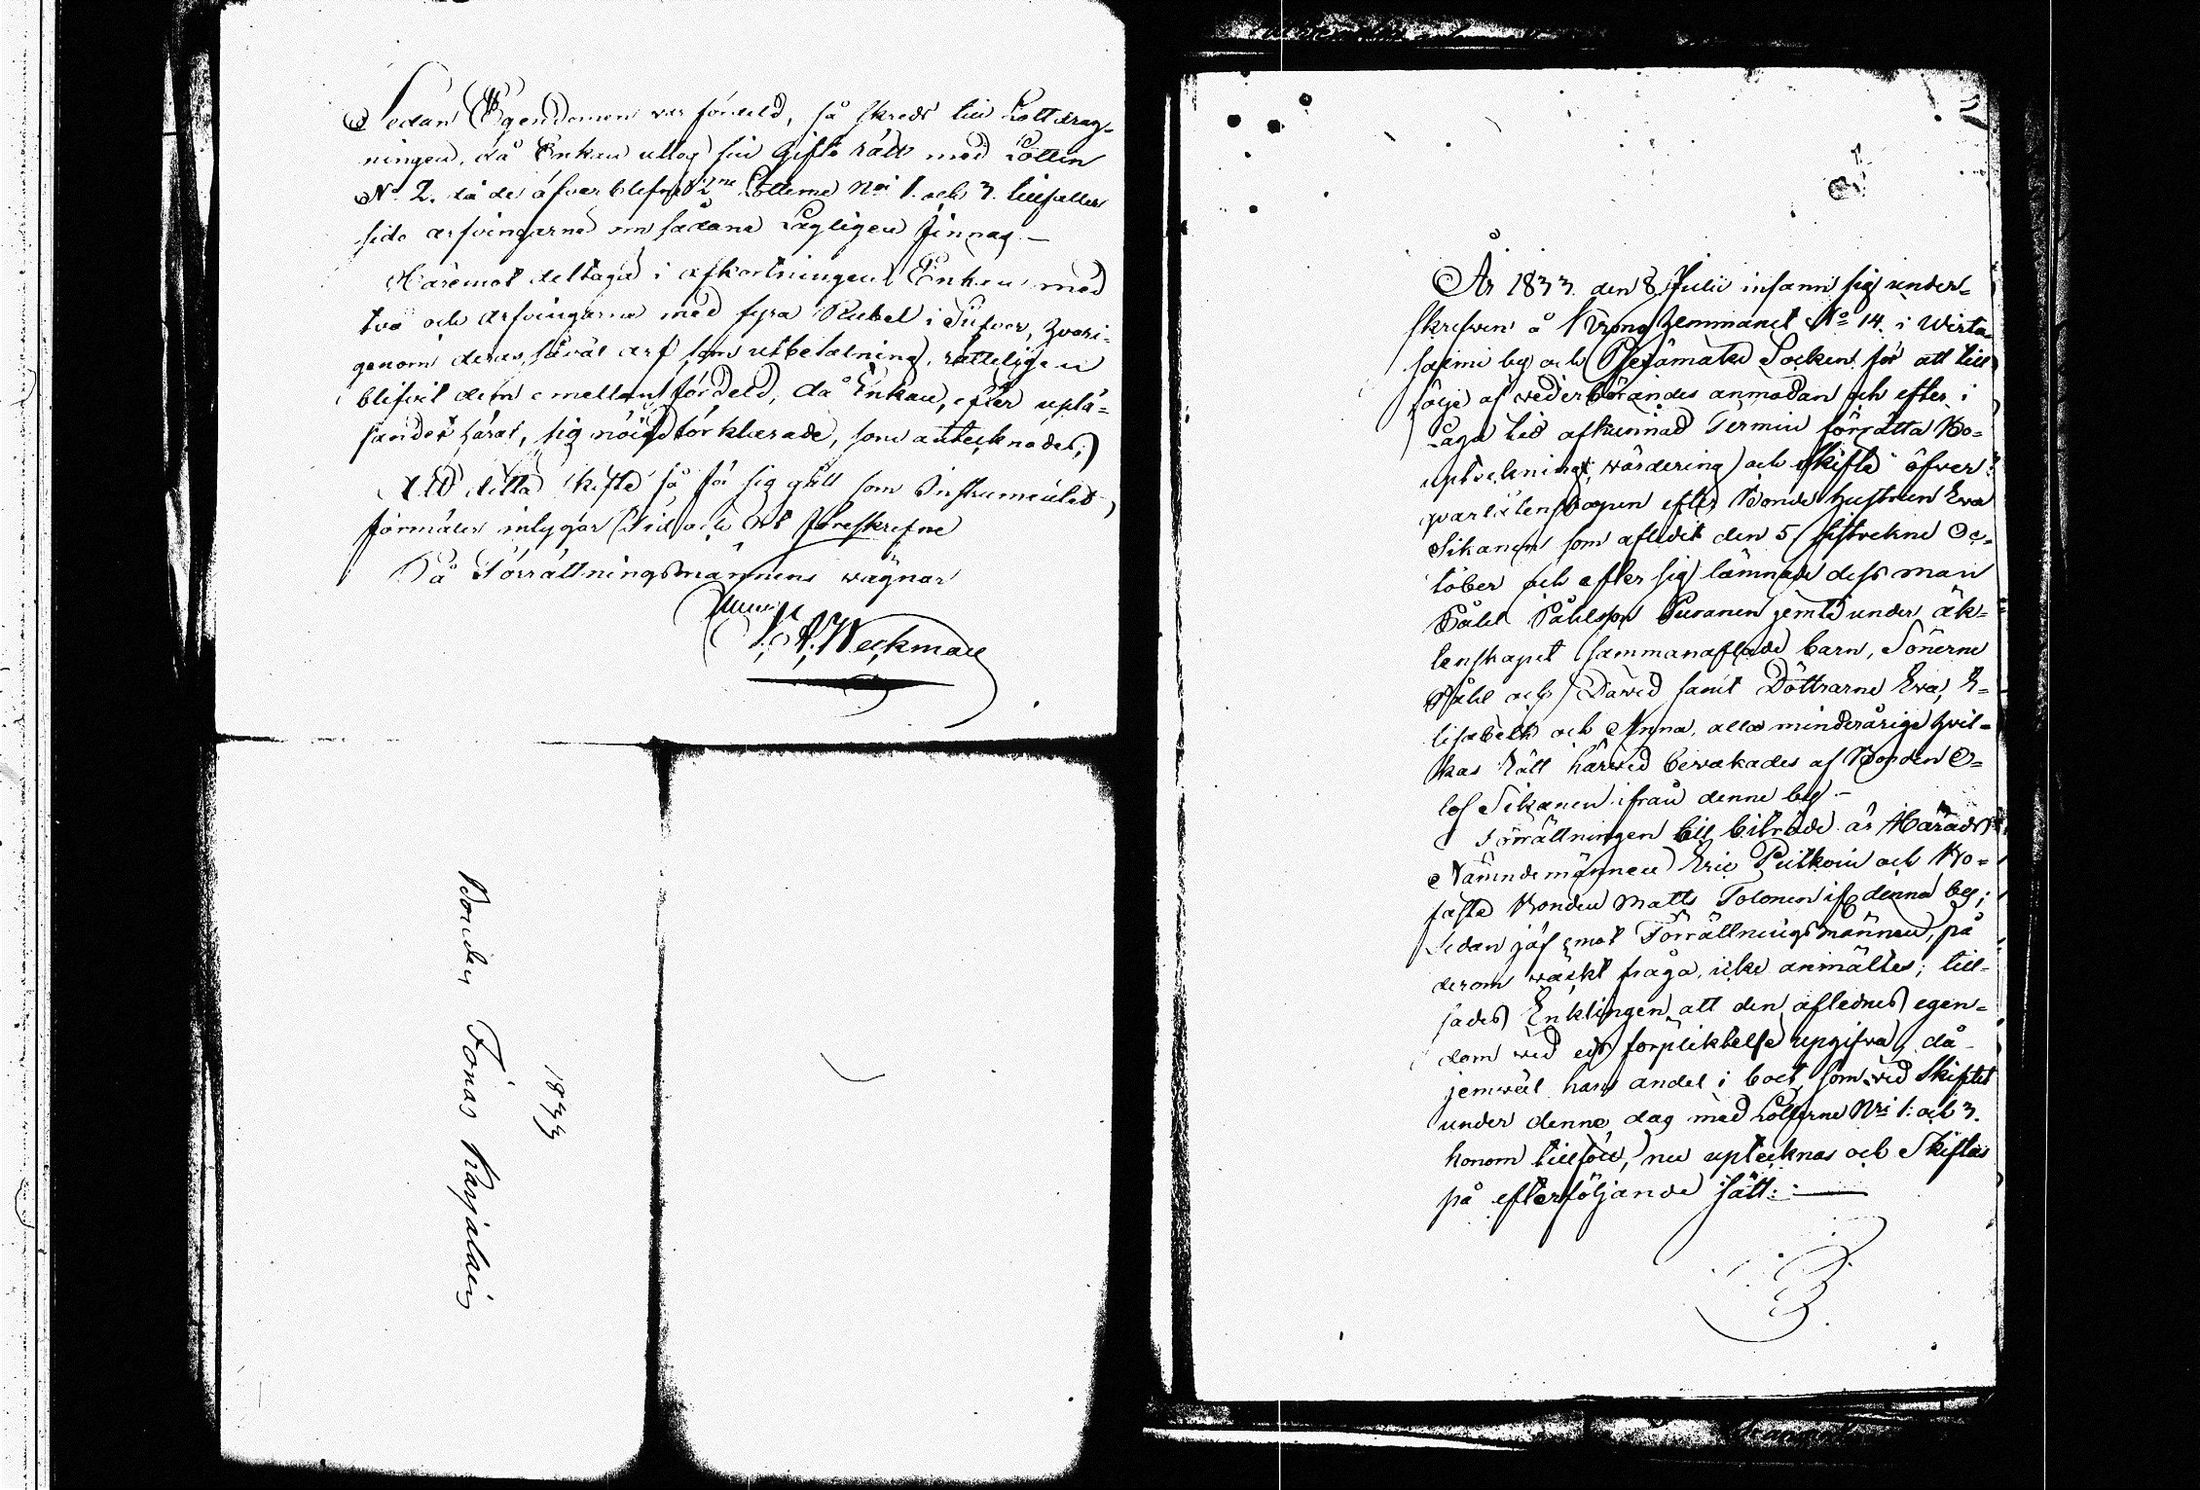 Sedan Egendomen var fördeld, så skreds till Lottdrag-
ningen, då Enkan uttog sin gifto rätt med Lotten
No 2. då de öfverblefne 2ne Lotterne Nri 1. och 3. tillfaller
sido arfvingarne om sådane Lagligen finnas.—
Häremot deltaga i afkortningen Enkan med
två och arfvingarna med fyra Rubel i Silfver, hvari-
genom deras såväl arf som utbetalning, rätteligen
blifvit dem emellan fördeld, då Enkan, efter uplä-
sandet häraf, sig nöigd förklarade, som antecknades;
Att detta skifte så för sig gått som Instrumentet
förmäler intygar Tid och Ort föreskrefne
På Förrättningsmännens wägnar
Weckman
Bonden Jonas Karjalain
1833
År 1833. den 8. Julii infann sig under-
skrefven å Krono hemmanet No 14. i Wirta
salmi by och Pjexämäki Socken för att till
följe af vederbörandes anmodan och efter i
Laga tid afkunnad Termin förrätta Bo-
uptekning, wärdering och skifte öfver
qvarlåtenskapen efter Bonde hustrun Ewa
Sikanen som afledit den 5 sistvekne Oc-
tober och efter sig lämnade dess man
Påhl Påhlsson Puranen jemte under äk-
tenskapet sammanaflade barn, Sönerne
Påhl och David samt Döttrarne Ewa, E-
lisabeth och Anna, alla minderårige hvil-
kas Rätt härwid bewakades af Bonden O-
lof Sikanen ifrån denne by.—
Förrättningen till biträde är Härads
Nämndemännen Eric Pulkoin och Bo-
fasta Bonden Matts Tolonen if. denna by;
Sedan jäf emot Förrättningsmännen, på
derom wäckt fråga, icke anmältes; till-
sades Enklingen att den aflednes egen-
dom wid eds förpliktelse upgifva, då
jemwäl hans andel i boet, som wid Skiftet
under denne dag med Lotterne Nri 1. och 3.
honom tillföll, nu uptecknas och Skiftas
på efterföljande sätt:—